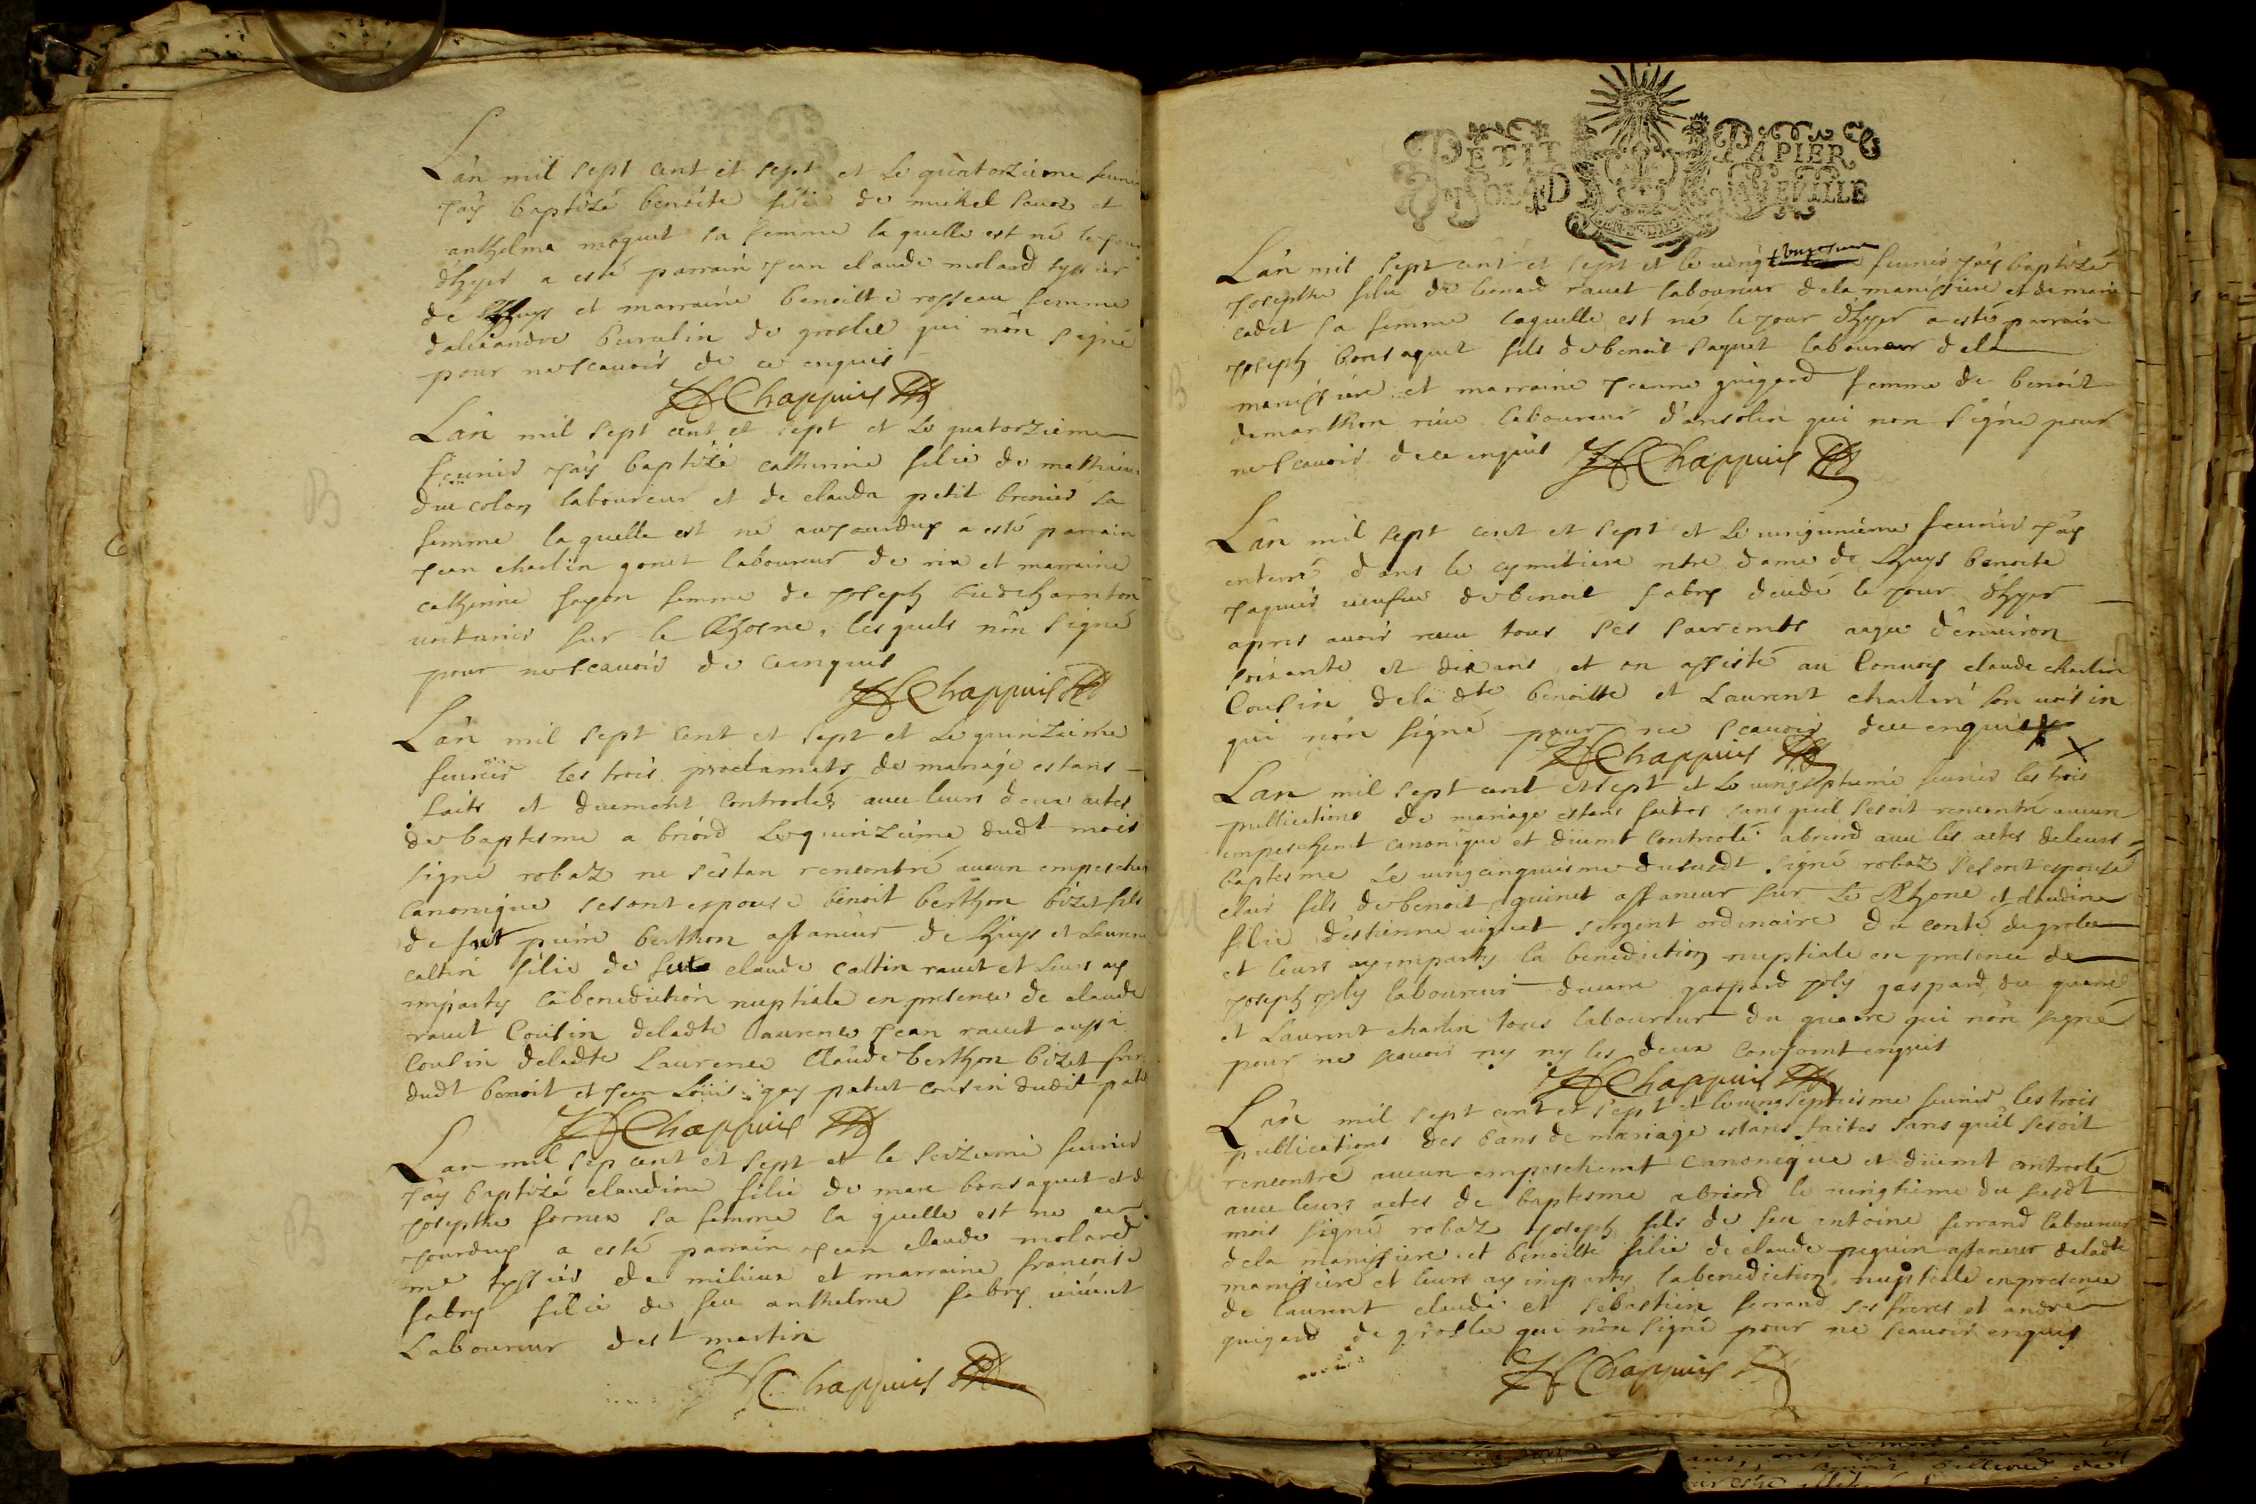 L'an mil sept cent et sept et le quatorzieme feurie
j'ay baptizé benoite filie de michel et
anthelma moquet sa femme laquelle est né le jour
d'hyer a esté parrain jean claude molard tyssier
de Lhuys et marraine benoitte rosseau femme
d'alexandre de groslee qui n'on signé
pour ne scauoir de ce enquis
Chappuis
B
L'an mil sept cent et sept et le quatorzieme
feurier j'ay baptizé catherine filie de mathieu
du colon laboureur et de clauda petit brenier sa
femme laquelle est né aujourduy a esté parrain
jean charlin gonet laboureur de rix et marraine
catherine femme de joseph
sur le Rhosne, lesquels n'on signé
pour ne scauoir de ce enquis
Chappuis
B
L'an mil sept cent et sept et le quinzieme
feurier les trois proclamats de mariage estans
faits et duement controolés auec leurs deux actes
de baptesme a briord le quinzieme dudt mois
signé robaz ne s'estan rencontré aucun empesche
canonique se sont espousé benoit berthon bizet fils
de fut piere berthon affaneur de Lhuys et Laurence
caltin filie de feu claude caltin rauet et leurs ay
imparty la benediction nuptiale en presence de claude
rauet cousin deladte laurence jean rauet aussi
cousin deladte Laurence Claude berthon bizet frere
dudt benoit et jean Loüis gay patut cousin dudit
Chappuis
L'an mil sep cent et sept et le seizieme feurier
j'ay baptizé claudine filie de marc bonsaquet et de
josephte fornex sa femme laquelle est ne au
jourduy a esté parrain jean claude molard
me tyssier de milieux et marraine francoise
fabry filie de feu anthelme fabry viuant
Laboureur de st martin
Chappuis
B
PETIT PAPIER
VEUILLE
L'an mil sept cent et sept et le feurier j'ay baptizé
josephte filie de benard rauet laboureur dela manissiere et de marie
cadet sa femme laquelle est né le jour d'hyer a esté parrain
joseph bonsaquet fils de benoit saquet laboureur dela
manissiere et marraine jeanne guigard femme de benoit
demarthon riue laboureur d'ansolin qui non signé pour
ne scauoir de ce enquis Chappuis
B
L'an mil sept cent et sept et le vingunieme feurier j'ay
enterré dans le cymitiere ntre dame de Lhuys benoite
jaquier veufue de benoit fabry decedé le jour d'hyer
apres auoir receu tous ses sacremts aagee d'enuiron
soixante et dix ans et on assisté au conuoy claude charlin
cousin deladte benoitte et Laurent charlin son voisin
qui n'on signé pour ne scauoir de ce enquis
Chappuis
L'an mil sept cent et sept et le vingseptieme feurier les trois
publications de mariage estans faites sans qu'il se soit rencontré aucun
empeschemt canonique et düemt controolé a briord auec les actes de leurs
baptesme le vingcinquiesme du susdt signé robaz se sont espousé
fils de benoit quinet affaneur sur le Rhone et claudine
filie d'estienne viguet sergent ordinaire du conté de groslee
et leurs ay imparty la benediction nuptiale en presence de
joseph joly laboureur gaspard joly gaspard du
et Laurent charlin tous laboureur du qui n'on signé
pour ne scauoir ny ny les deux conjoint enquis
Chappuis
M
L'an mil sept cent et sept et le vingseptiesme feurier les trois
publications des bans de mariage estans faites sans qu'il se soit
rencontré aucun empeschemt canonique et düemt controolé
auec leurs actes de baptesme a briord le vingtieme du susdt
mois signé robaz joseph fils de feu antoine ferrand laboureur
dela manissiere et benoitte filie de claude peguin affaneur deladte
manissiere et leurs ay imparty la benediction nuptiale en presence
de laurent claude et sebastien ferrand ses freres et andre
guigard de groslee qui n'on signé pour ne scauoir enquis
Chappuis
M